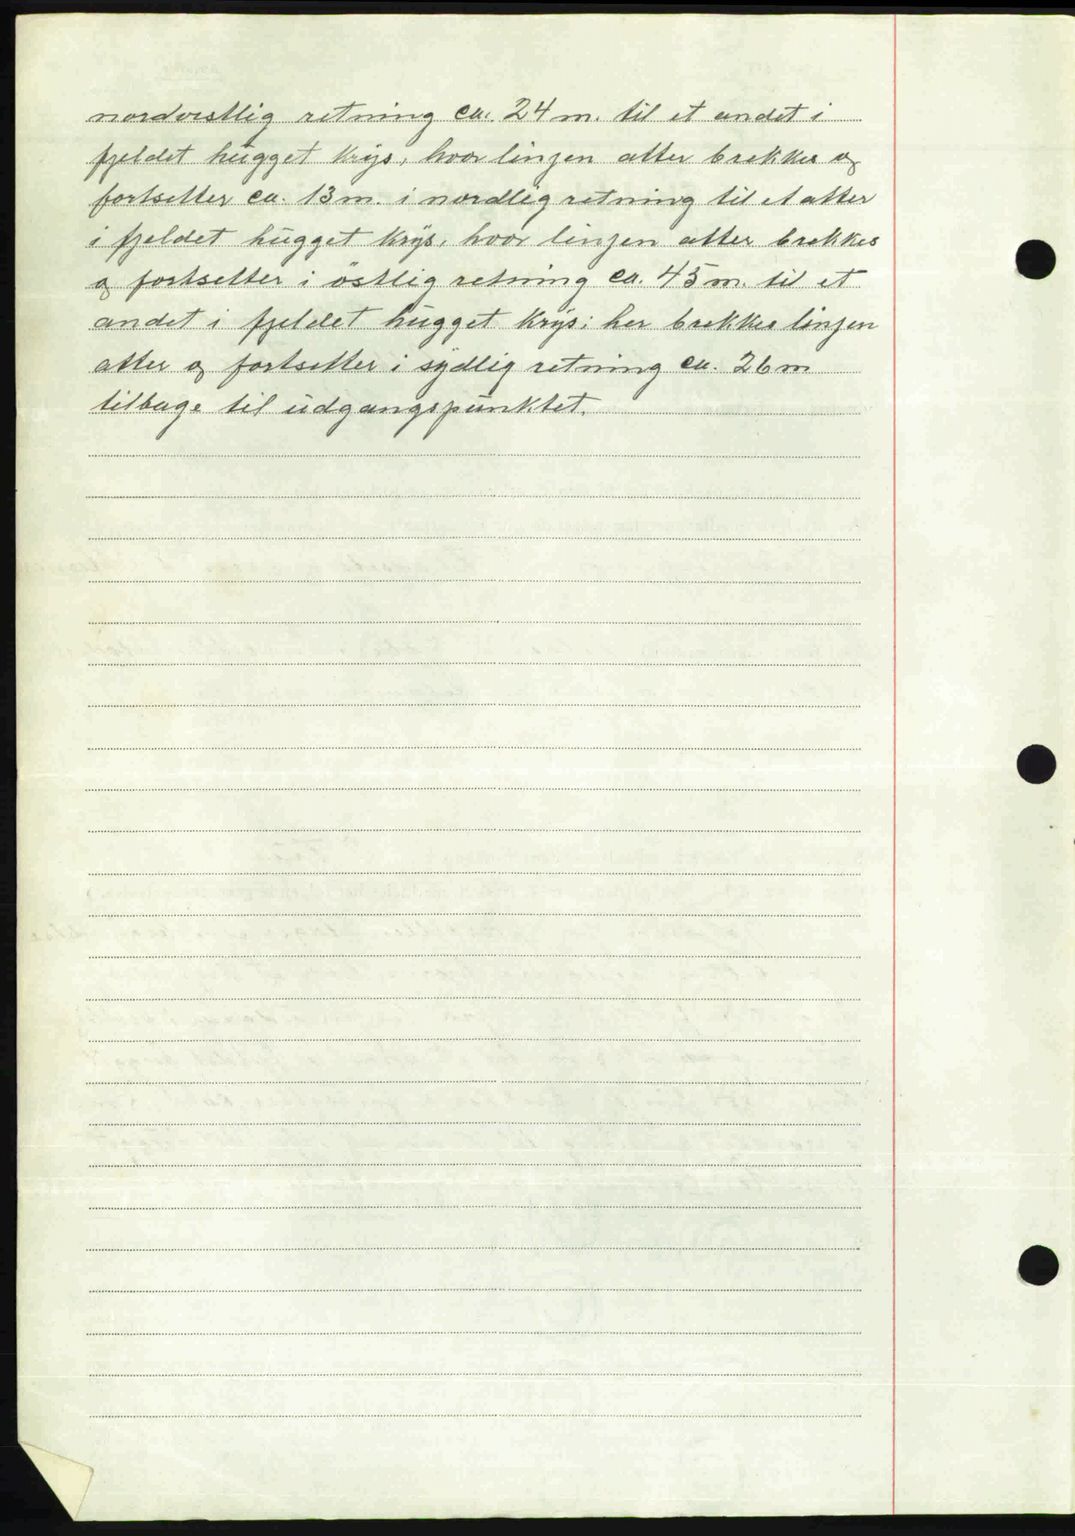 nordvestlig retning ca. 24 m. til et andet i
fjeldet hugget krys, hvor linjen atter brekkes og
fortsetter ca. 13 m. i nordlig retning til et atter
i fjeldet hugget krys, hvor linjen atter brekkes
og fortsetter i östlig retning ca. 45 m. til et
andet i fjeldet hugget krys; her brekkes linjen
atter og fortsetter i sydlig retning ca. 26 m
tilbage til udgangspunktet.